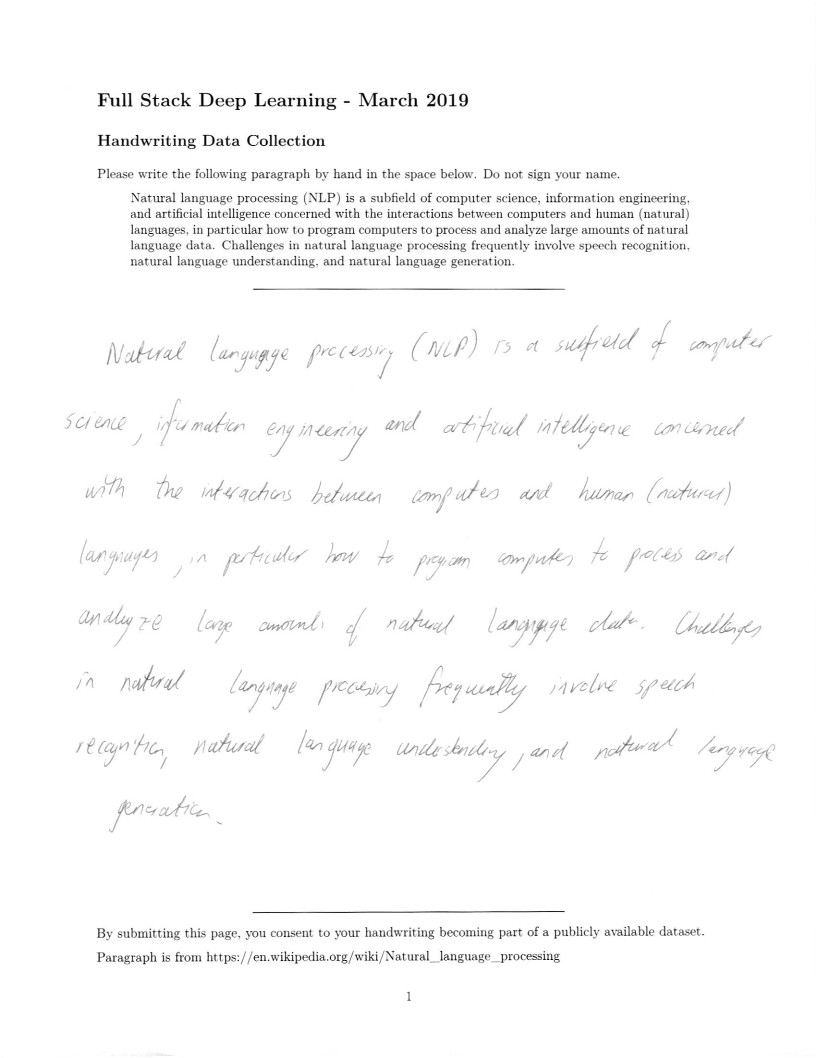 Full Stack Deep Learning - March 2019
Handwriting Data Collection
Please write the following paragraph by hand in the space below. Do not sign your name.
Natural language processing (NLP) is a subfield of computer science, information engineering,
and artificial intelligence concerned with the interactions between computers and human (natural)
languages, in particular how to program computers to process and analyze large amounts of natural
language data. Challenges in natural language processing frequently involve speech recognition,
natural language understanding, and natural language generation.
Natural language processing (NLP) is a subfield of computer
science, information engineering and artificial intelligence concerned
with the interactions between computes and human (natural)
languages, in particular how to program computers to process and
analyze large amounts of natural language data. Challenges
in natural language processing frequently involve speech
recognition, natural language understanding, and natural language
generation.
By submitting this page, you consent to your handwriting becoming part of a publicly available dataset.
Paragraph is from https://en.wikipedia.org/wiki/Natural_language_processing
1